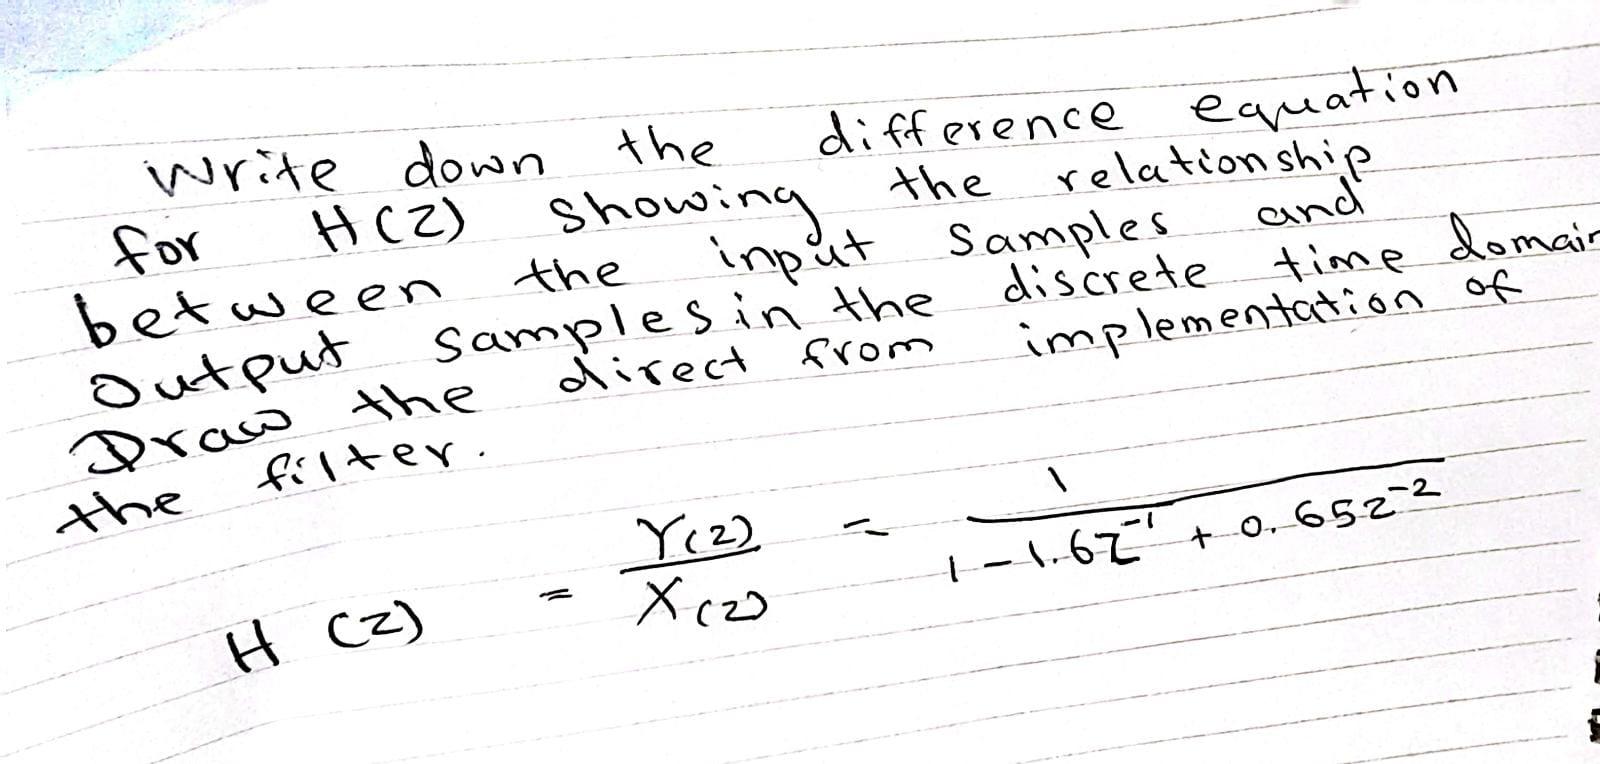 Write down the difference equation
for H(Z) showing the relationship
between the input samples and
Output samples in the discrete time domain
Draw the direct from implementation of
the filter.
H (Z) = Y(Z) / X(Z) = 1 / 1 - 1.6Z^-1 + 0.65Z^-2